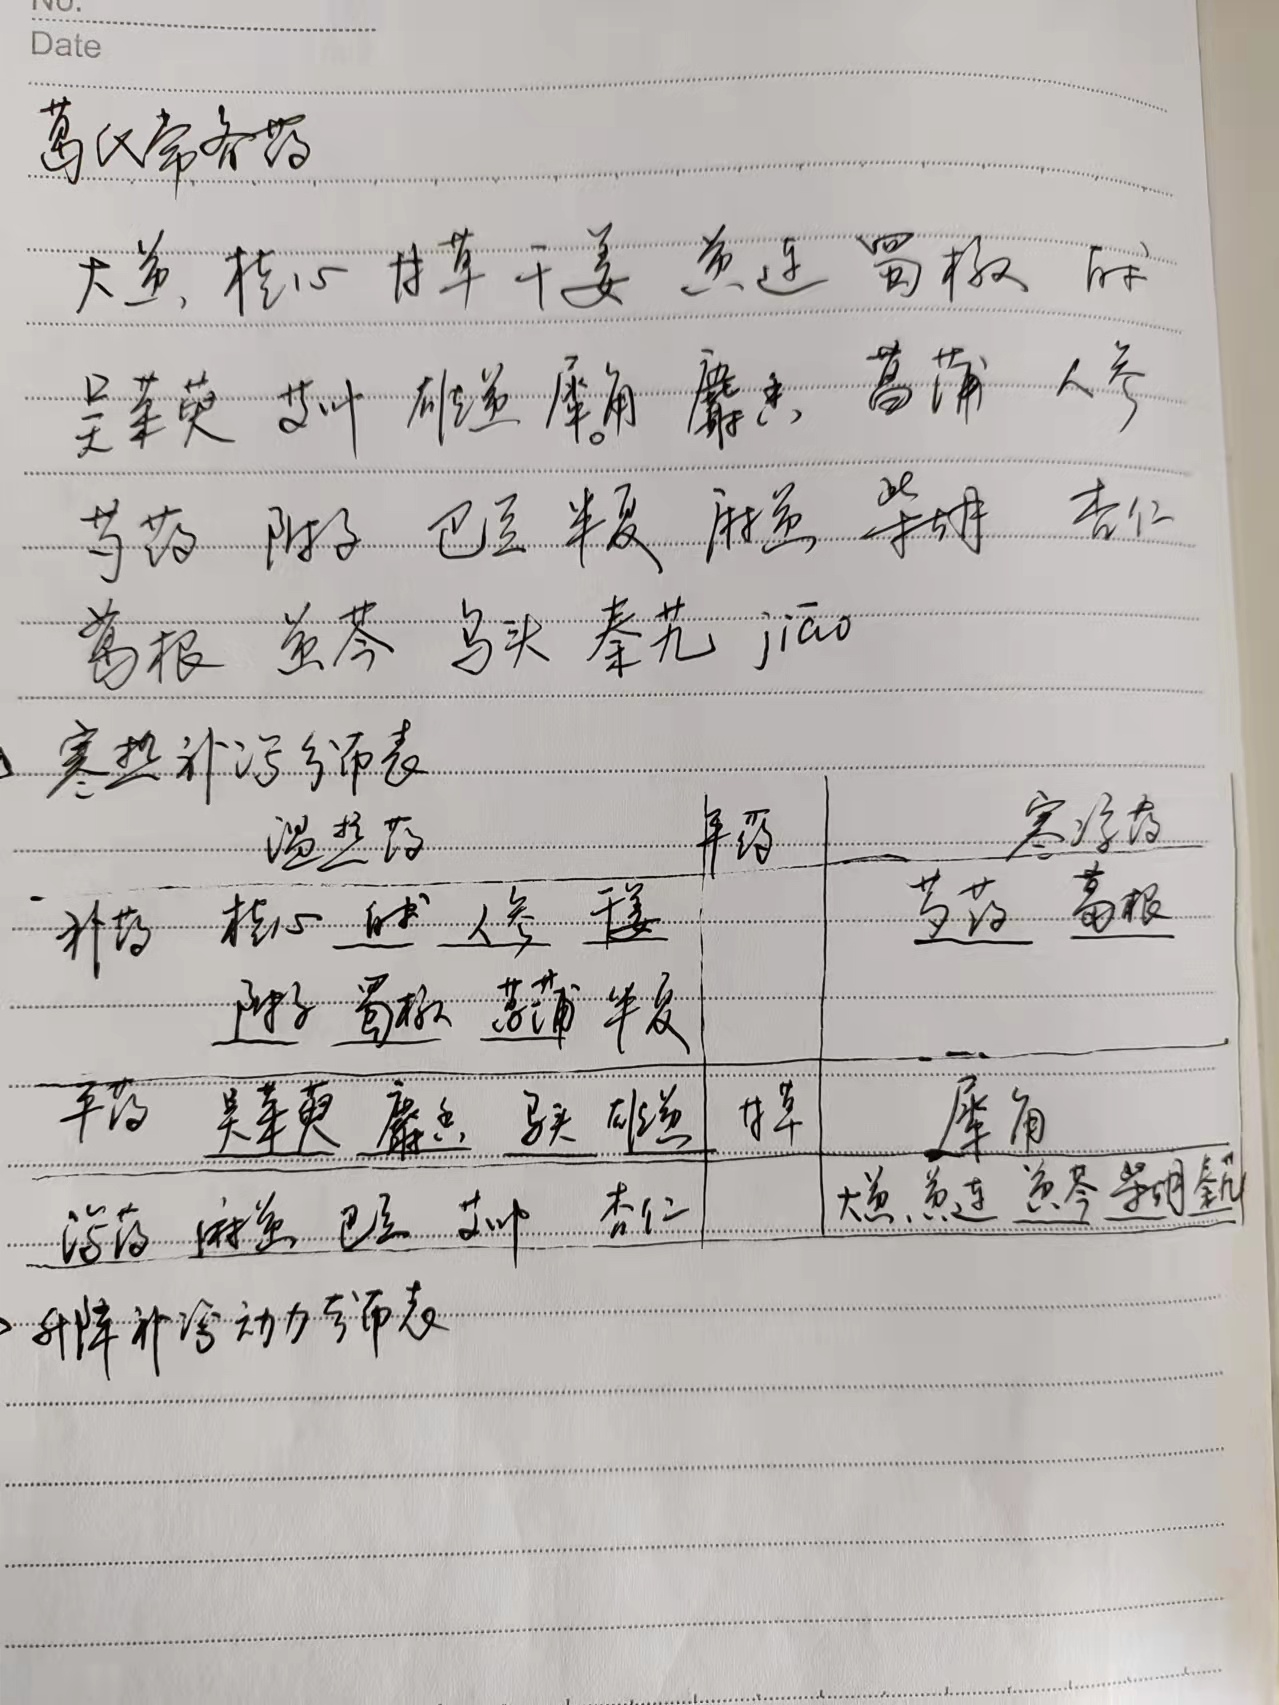 No.
Date
葛氏常备药
大黄、桂心 甘草 干姜 黄连 蜀椒 白术
吴茱萸 艾叶 雄黄 犀角 麝香 菖蒲 人参
芍药 附子 巴豆 半夏 麻黄 柴胡 杏仁
葛根 黄芩 乌头 秦艽 jiāo
寒热补泻分布表
温热药 平药 寒凉药
补药 桂心 白术 人参 干姜 芍药 葛根
附子 蜀椒 菖蒲 半夏
平药 吴茱萸 麝香 乌头 雄黄 甘草 犀角
泻药 麻黄 巴豆 艾叶 杏仁 大黄、黄连 黄芩 柴胡 秦艽
升降补泻动力分布表